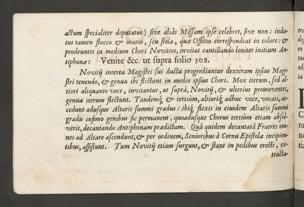 actum specialiter deputatus) sive aliàs Missam ipse celebret, sive non: indu-
tus tamen flocco & orario, seu stola, quæ Officio correspondeat in colore: &
prodeuntes in medium Chori Novitios, invitat cantillando leniter initium An-
tiphonæ: Venite &c. ut supra folio 308.
Novitii interea Magistri sui ductu progrediuntur dexteram ipsius Magi-
stri tenendo, & genua ibi flectunt in medio ipsius Chori. Mox iterum, sed al-
tiori aliquanto voce, invitantur, ut suprà, Novitii, & ulterius promoventi,
genua iterum flectunt. Tandemq́; & tertium, altioriq́; adhuc voce, vocati, ac-
cedunt adusque Altaris summi gradus: ibiq́; flexis in eiusdem Altaris summi
gradu infimo genibus sic permanent, quoadusque Chorus tertium etiam absol-
verit, decantando Antiphonam prædictam. Quâ quidem decantatâ Fratres om-
nes ad Altare ascendunt, & per ordinem, Senioribus à Cornu Epistolæ incipien-
tibus, assistunt. Tum Novitii etiam surgunt, & stant in pedibus erecti, ex-
tracta-